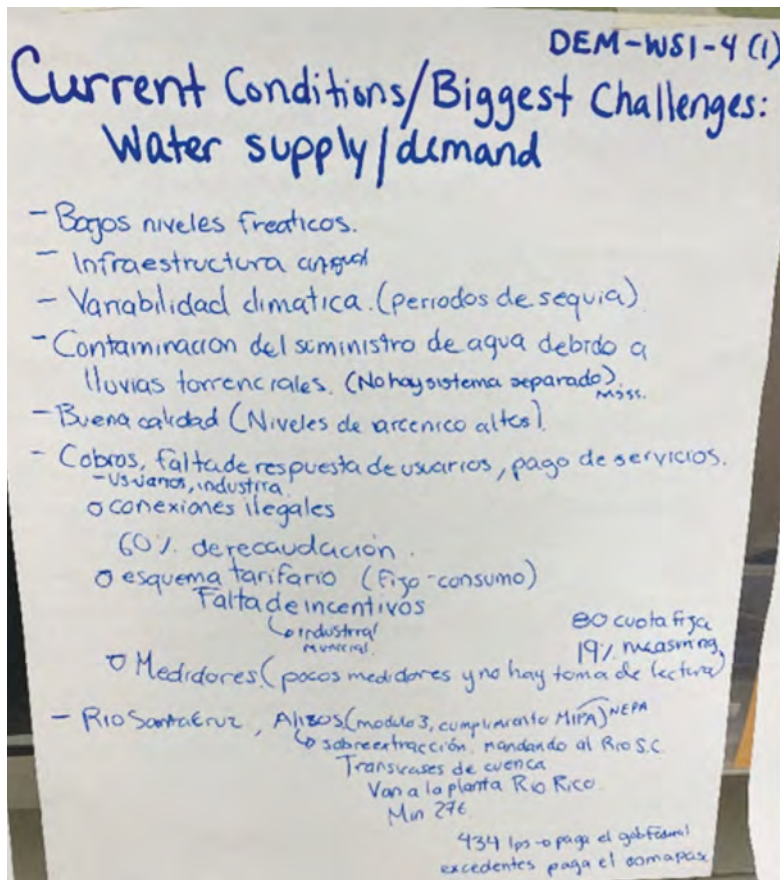 DEM-WSI-4 (1)
Current Conditions/Biggest Challenges:
Water supply/demand
- Bajos niveles freaticos.
- Infraestructura
- Variabilidad climatica. (periodos de sequia)
- Contaminacion del suministro de agua debido a
lluvias torrenciales. (No hay sistema separado).
- Buena calidad (Niveles de arcenico altos).
- Cobros, falta de respuesta de usuarios, pago de servicios.
- Usuarios, industria
o conexiones ilegales
60% de recaudación.
o esquema tarifario (Fijo-consumo)
Falta de incentivos
industrial
municial
80 cuota fija
19%
o Medidores (pocos medidores y no hay toma de lectura)
- Rio Santa Cruz, Alisos (modulo 3, cumplimiento MIPA) NEPA
sobreextracción, mandando al Rio S.C.
Transvases de cuenca
Van a la planta Rio Rico.
Min 276
434 lps → paga el gob Federal
excedentes paga el oomapas